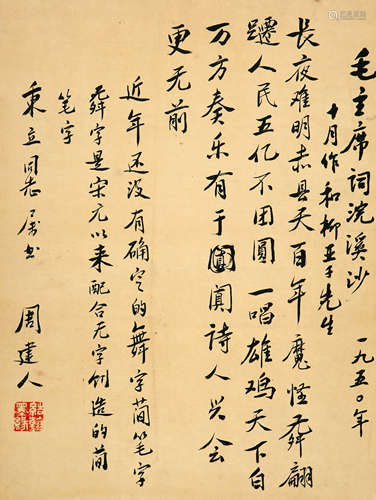 毛主席词浣溪沙 一九五〇年
十月作和柳亚子先生
長夜难明赤县天百年魔怪舞翩
躚人民五亿不团圓 一唱雄鸡天下白
万方奏乐有于闐诗人兴会
更无前
近年还没有确定的舞字简笔字
舞字是宋元以来配合无字创造的简
笔字
秉立同志属书
周建人